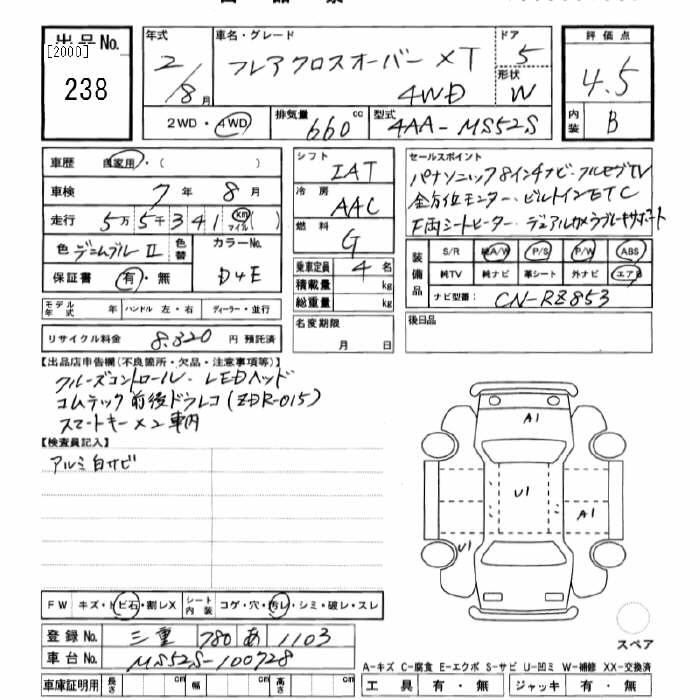 出品No.
[2000]
238
年式
2/8月
車名・グレード
フレアクロスオーバー XT
4WD
ドア
5
形状
W
評価点
4.5
内装
B
2WD・4WD
排気量
660 cc
型式
4AA-MS52S
車歴 自家用・( )
車検 7年 8月
走行 5万5千341 km マイル ( )
色 デニムブルーⅡ
色替
カラーNo.
D4E
保証書 有・無
シフト
IAT
冷房
AAC
燃料
G
乗車定員 4名
積載量 kg
総重量 kg
名変期限
月 日
セールスポイント
パナソニック8インチナビ・フルセグTV
全方位モニター・ビルトインETC
F両シートヒーター・デュアルカメラブレーキサポート
装備品
S/R 純A/W P/S P/W ABS
純TV 純ナビ 革シート 外ナビ エアB
ナビ型番: CN-RZ853
後日品
モデル年式 年 ハンドル 左・右 ディーラー・並行
リサイクル料金 8,320 円 預託済
【出品店申告欄(不良箇所・欠品・注意事項等)】
クルーズコントロール・LEDヘッド
コムテック前後ドラレコ(ZDR-015)
スマートキー×2 車内
【検査員記入】
アルミ白サビ
A1
U1
A1
U1
FW キズ・トビ石・割レX
シート内装 コゲ・穴・汚レ・シミ・破レ・スレ
登録No. 三重 780 あ 1103
車台No. MS52S-100728
車庫証明用 長さ cm 幅 cm 高さ cm
スペア
A-キズ C-腐食 E-エクボ S-サビ U-凹ミ W-補修 XX-交換済
工具 有・無 ジャッキ 有・無